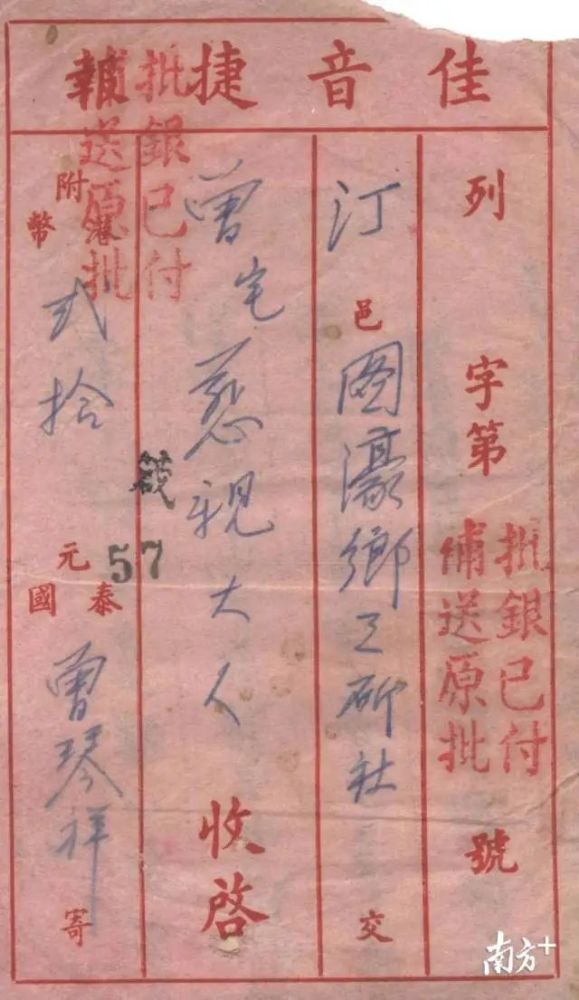 佳音捷報
列字第號
批銀已付
補送原批
汀邑图濠鄉工斫社交
曾宅慈親大人收啓
批銀已付
補送原批
附港幣弍拾元
57
泰國曾琴祥寄
南方+